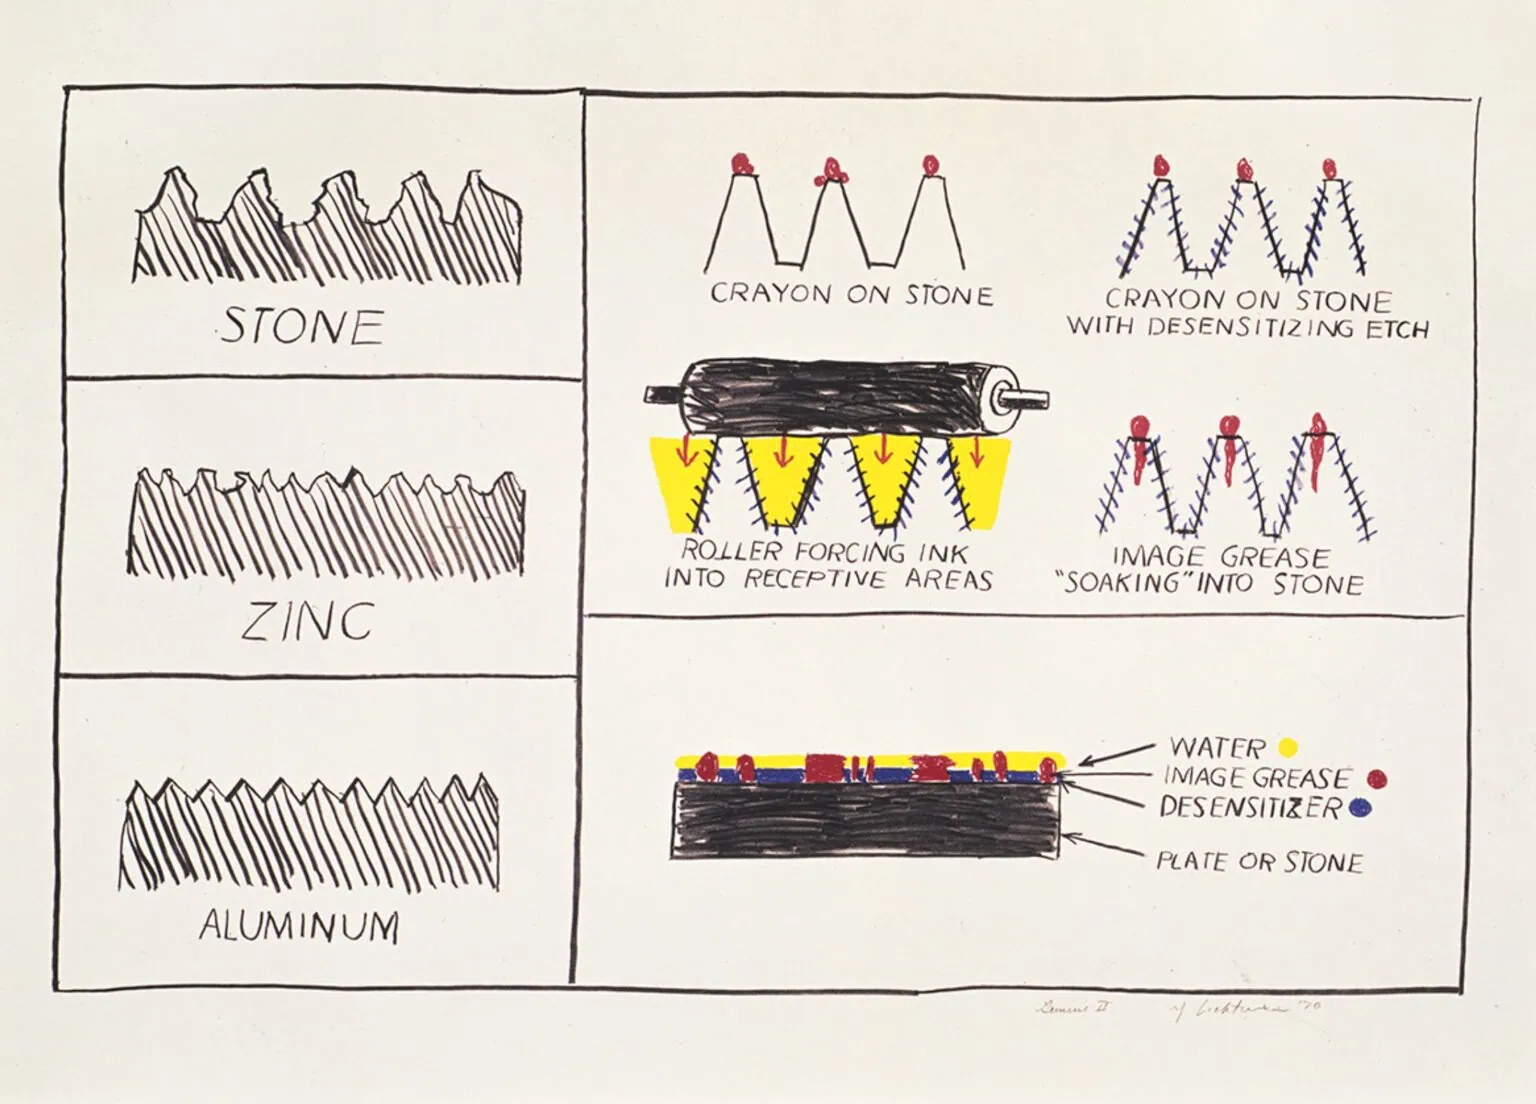 STONE
ZINC
ALUMINUM
CRAYON ON STONE
CRAYON ON STONE
WITH DESENSITIZING ETCH
ROLLER FORCING INK
INTO RECEPTIVE AREAS
IMAGE GREASE
"SOAKING" INTO STONE
WATER
IMAGE GREASE
DESENSITIZER
PLATE OR STONE
Gemini II
'70